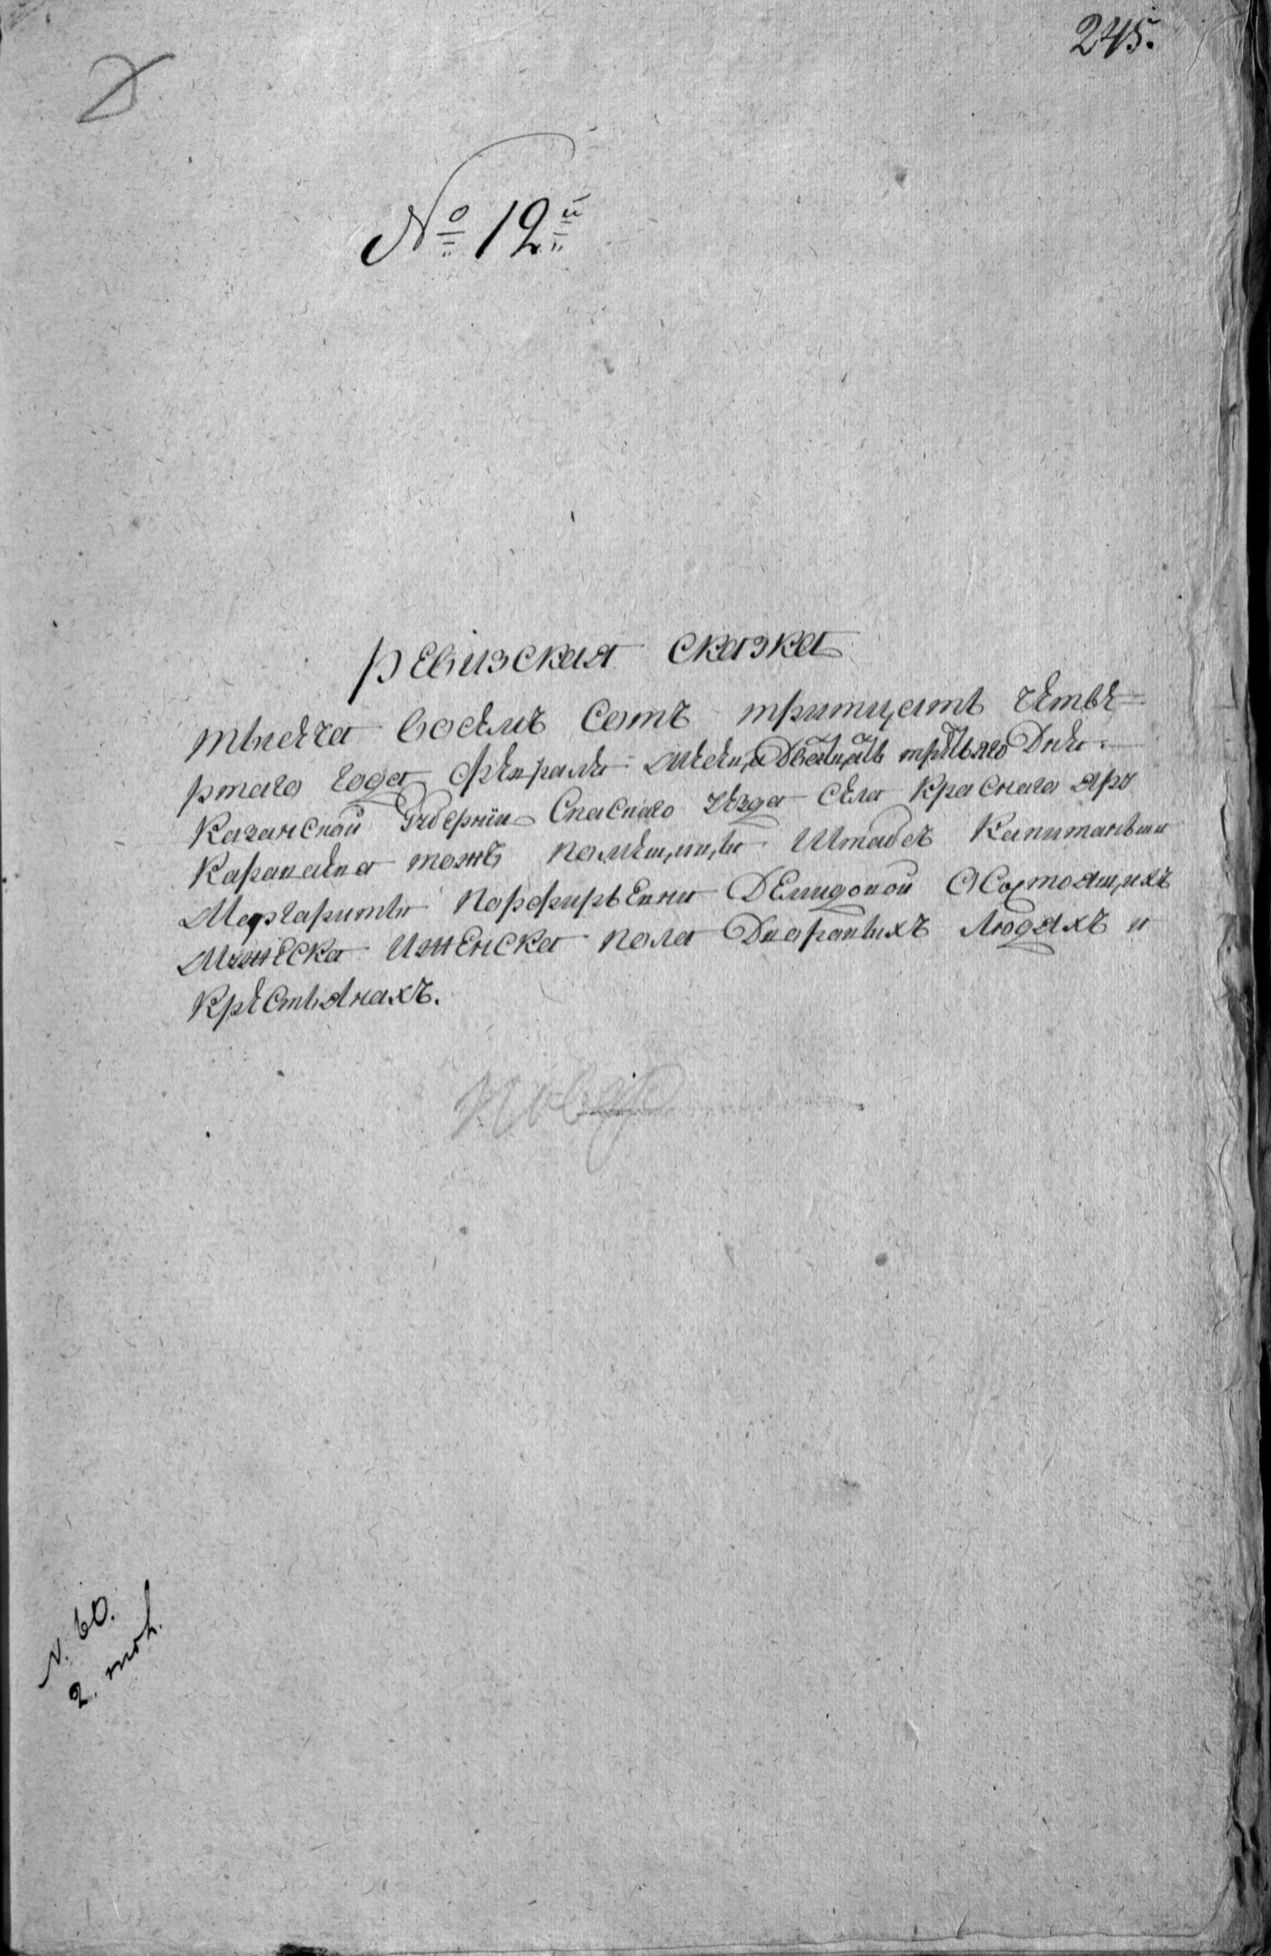 245.
№ 12й
Ревизская сказка
тысеча восемь сотъ тритцать четве=
ртаго года Февраля месеца двatцать третьяго дня
Казанской Губернии Спаскаго уезда села Краснаго яру
тожъ помещицы Штабсъ Капитанши
Маргариты Парфирьевны Демидовой О состоящихъ
мужеска иженска пола дворовыхъ людяхъ и
крестьянахъ.
N. 60.
2.